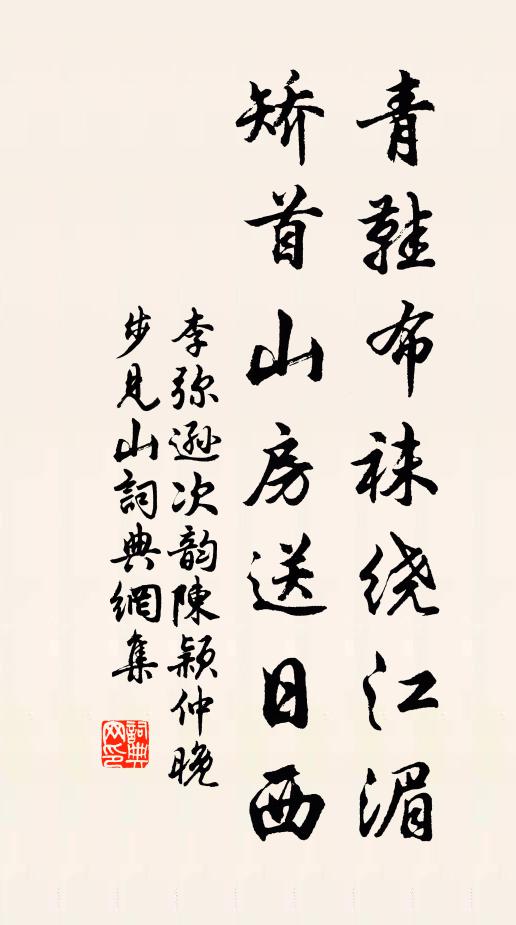 青鞋布袜绕江湄
矫首山房送日西
李弥逊次韵陳穎仲晚
步见山詞典網集
詞典